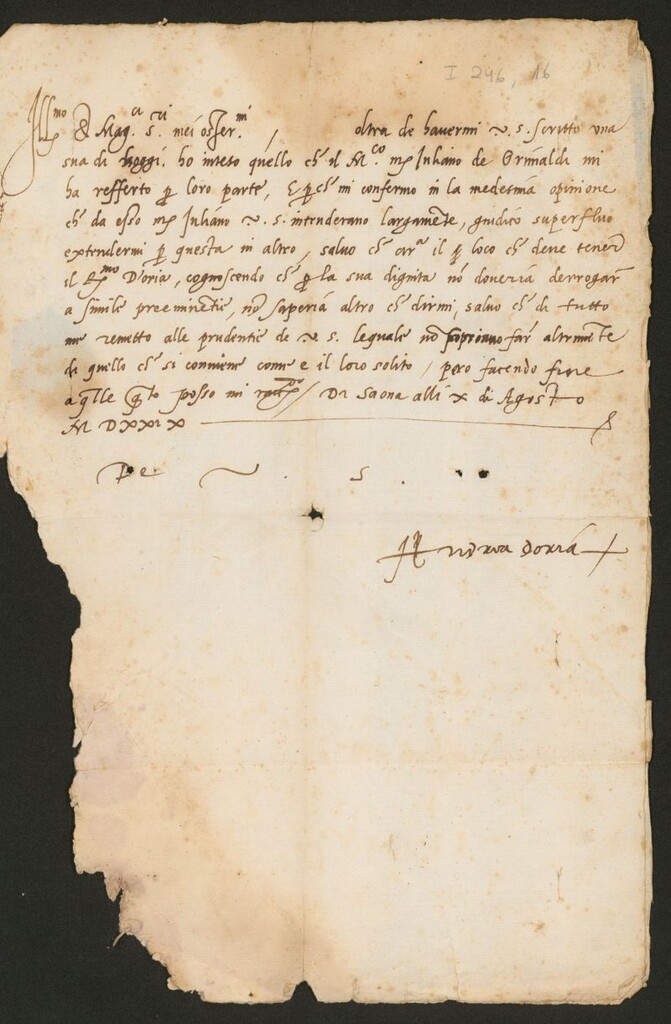 I 246, 16
Ill.mo & Mag.ci S.ri mei osser.mi, oltra de havermi v. s. scritto una
sua di hoggi. ho inteso quello ch il M.co mp Juliano de Grimaldi mi
ha refferto p loro parte, E pch mi confermo in la medesima opinione
ch da esso mp Juliano v. s. intenderano largamēte, giudico superfluo
extendermi p questa in altro, salvo ch circa il loco ch deve tener
il R.mo D'oria, cognoscendo ch p la sua dignita nō doveria derrogar
a simile preeminētie, nō saperia altro ch dirmi, salvo ch di tutto
me remetto alle prudentie de v. s. lequale nō far altrimēte
di quello ch si conviene come e il loro solito, pero facendo fine
a qlle qto posso mi Da Saona alli x di Agosto
M D XX
De v. s.
Andrea doria